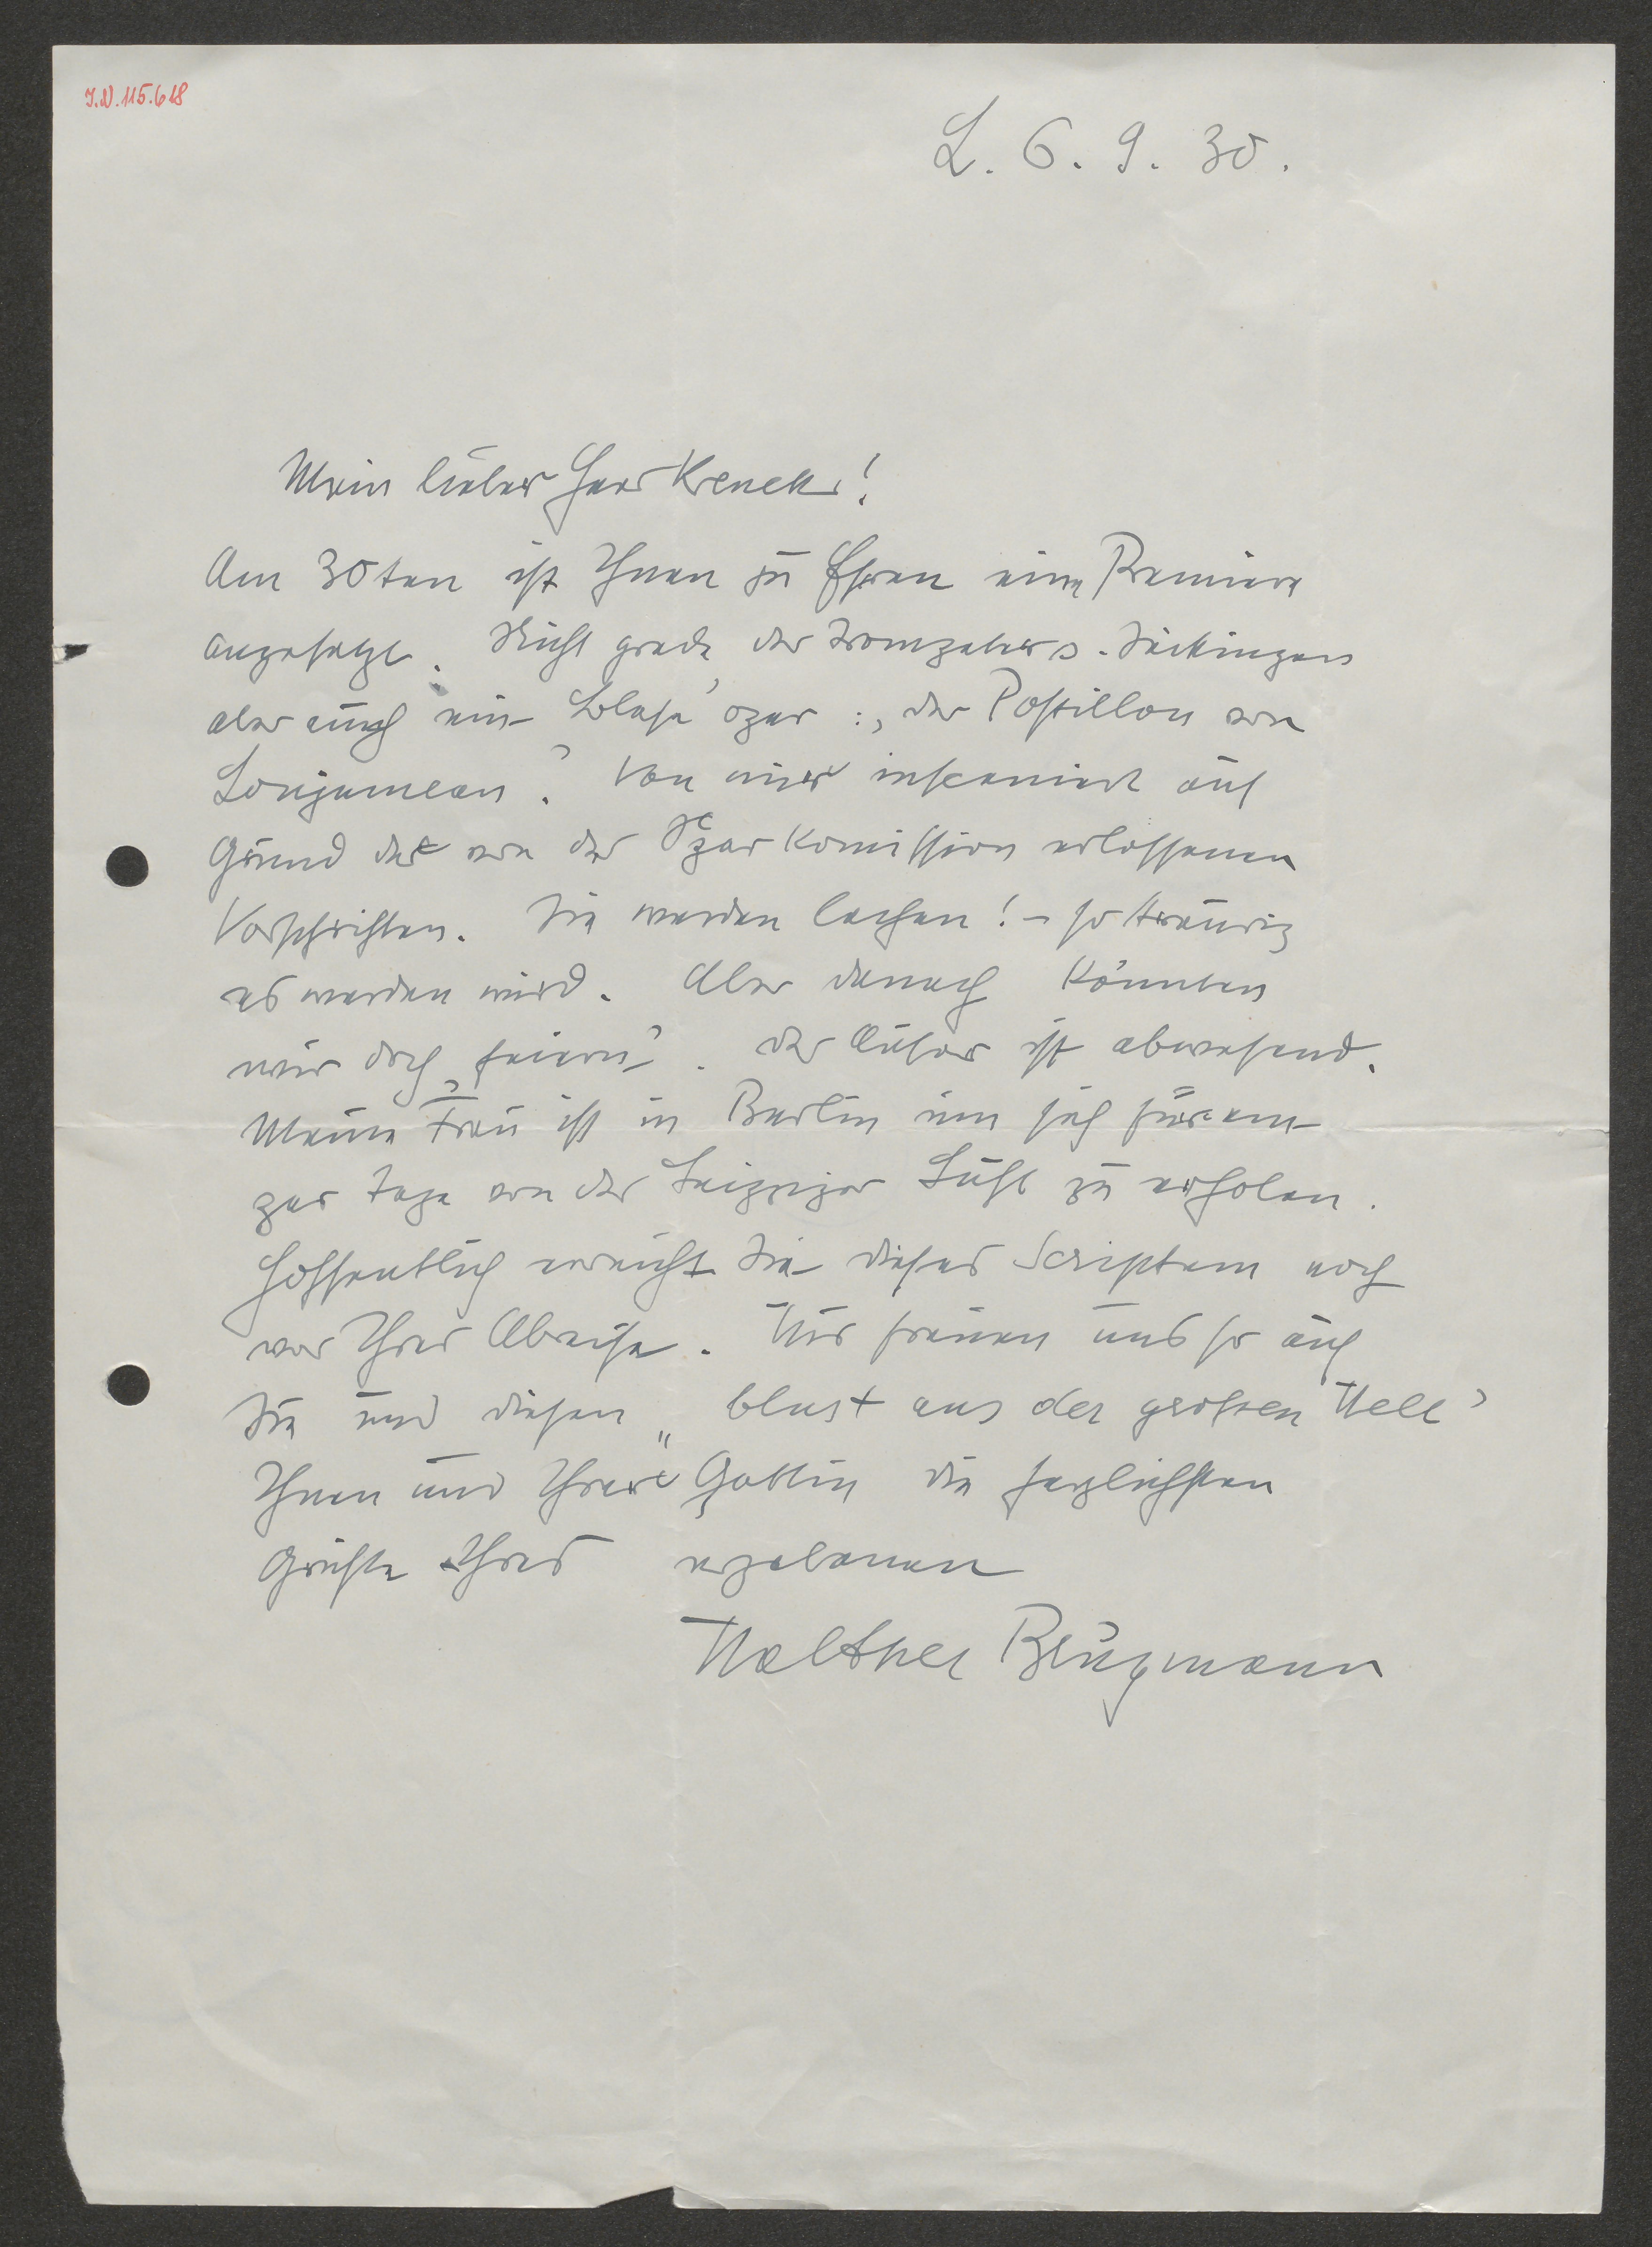 I.N. 115.618
L. 6. 9. 30.
Mein lieber Herr Krenek!
Am 30ten ist Ihnen zu Ehren eine Premiere
angesetzt. Nicht grade der Trompeter v. Säckingen
aber auch eine Blase'oper: „der Postillon von
Lonjumeau". Von mir insceniert auf
Grund der von der Opernkomission erlassenen
Vorschriften. Sie werden lachen! – so traurig
es werden wird. Aber danach könnten
wir doch „feiern". der Autor ist abwesend.
Meine Frau ist in Berlin um sich für ein
paar Tage von der Leipziger Luft zu erholen.
Hoffentlich erreicht Sie dieses Scriptum noch
vor Ihrer Abreise. Wir freuen uns so auf
Sie und diesen „blust aus der grossen Welt"
Ihnen und Ihrer Gattin die herzlichsten
Grüsse Ihres ergebenen
Walther Brügmann